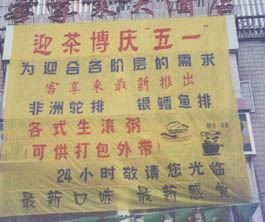 客享来大酒店
迎茶博庆"五一"
为迎合各阶层的需求
客享来最新推出
非洲鸵排 银鳕鱼排
各式生滚粥
(可供打包外带)
24小时敬请您光临
最新口味 最新感觉